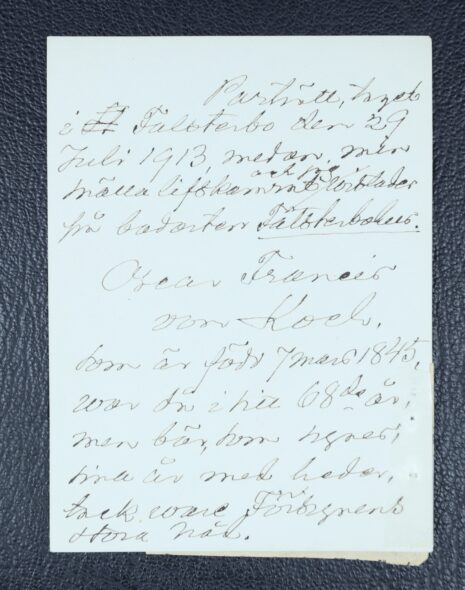 Porträtt, taget
i Falsterbo den 29
Juli 1913 medan min
och jag
på badorten Falsterbohus.
Oscar Francis
von Koch,
som är född 7 mars 1845,
war då i sitt 68de år,
men bär, som synes,
sina år med heder,
tack ware Försynens
stora nåd.